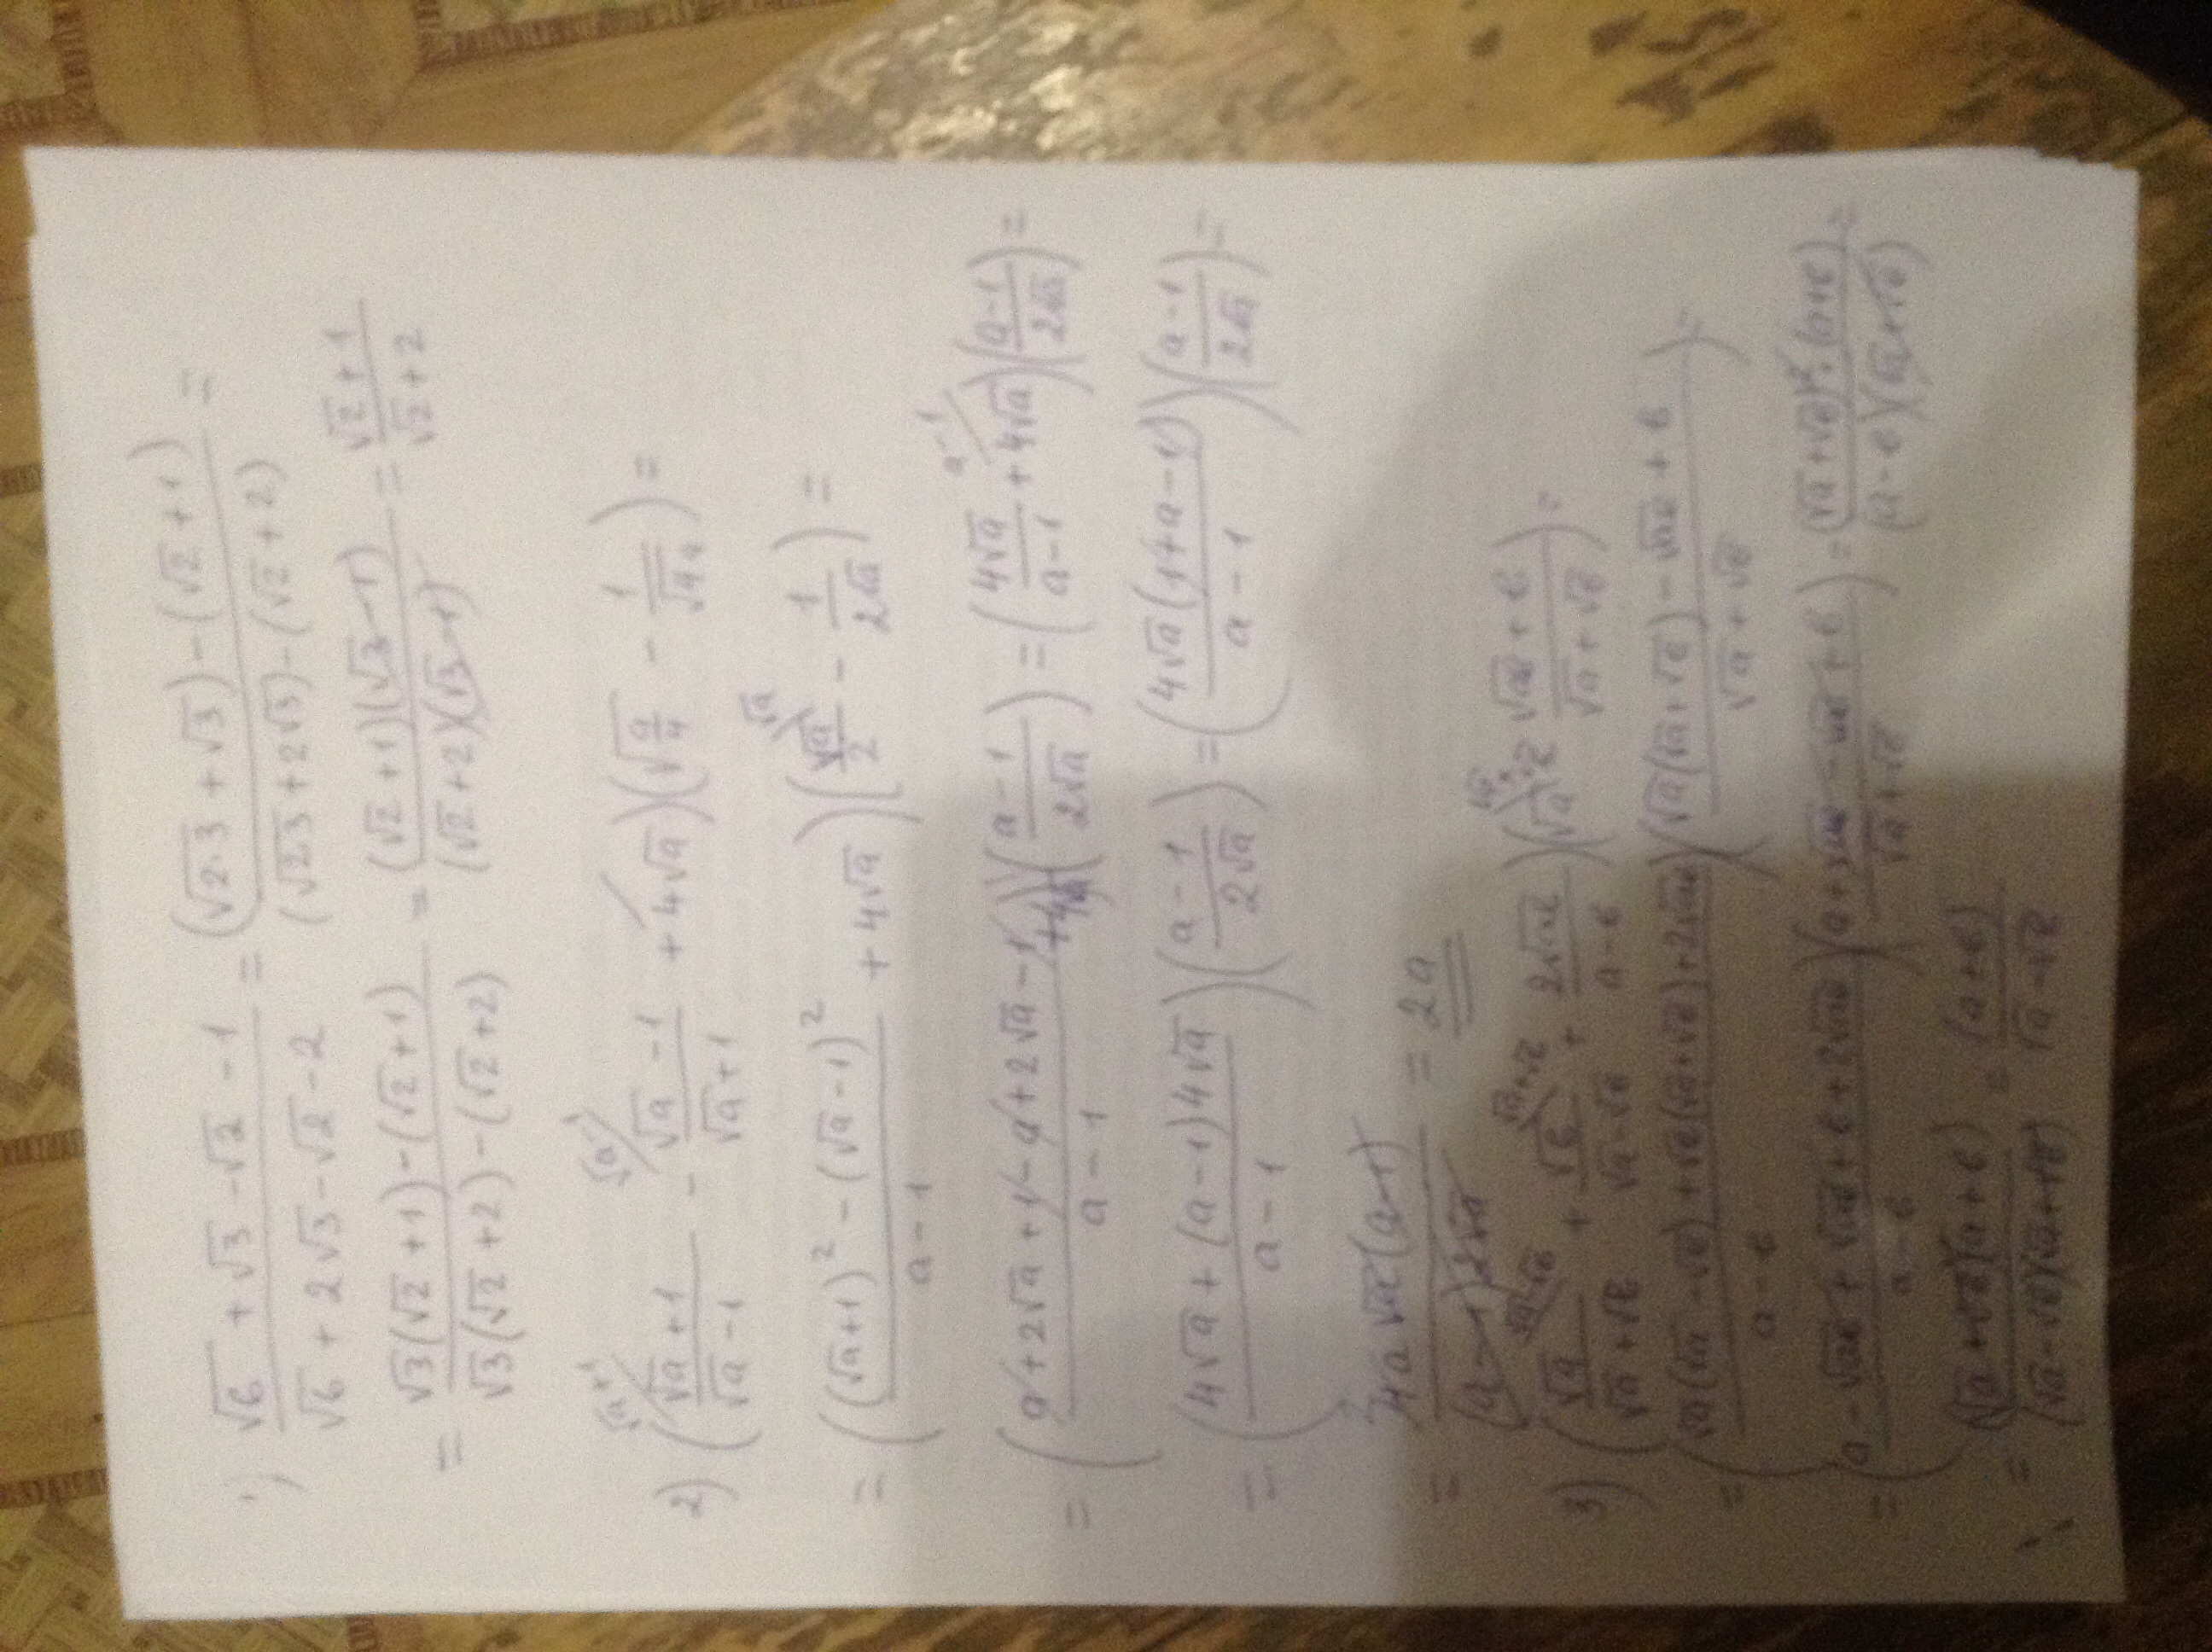 1) (√6 + √3 - √2 - 1)/(√6 + 2√3 - √2 - 2) = ((√2·3 + √3) - (√2 + 1))/((√2·3 + 2√3) - (√2 + 2)) =
= (√3(√2 + 1) - (√2 + 1))/(√3(√2 + 2) - (√2 + 2)) = ((√2 + 1)(√3 - 1))/((√2 + 2)(√3 - 1)) = (√2 + 1)/(√2 + 2)
2) ((√a + 1)/(√a - 1) - (√a - 1)/(√a + 1) + 4√a)(√(a/4) - 1/√(4a)) =
= (((√a + 1)² - (√a - 1)²)/(a - 1) + 4√a)(√a/2 - 1/(2√a)) =
= ((a + 2√a + 1 - a + 2√a - 1)/(a - 1) + 4√a)((a - 1)/(2√a)) = (4√a/(a - 1) + 4√a)((a - 1)/(2√a)) =
= ((4√a + (a - 1)4√a)/(a - 1))((a - 1)/(2√a)) = ((4√a(1 + a - 1))/(a - 1))((a - 1)/(2√a)) =
= (4a√a(a - 1))/((a - 1)2√a) = 2a
3) (√a/(√a + √в) + √в/(√a - √в) + 2√aв/(a - в))(√a - (√aв + в)/(√a + √в)) =
= ((√a(√a - √в) + √в(√a + √в) + 2√aв)/(a - в))((√a(√a + √в) - √aв + в)/(√a + √в)) =
= ((a - √aв + √aв + в + 2√aв)/(a - в))((a + √aв - √aв + в)/(√a + √в)) = ((√a + √в)²·(a + в))/((a - в)(√a + √в)) =
= ((√a + √в)(a + в))/((√a - √в)(√a + √в)) = (a + в)/(√a - √в)